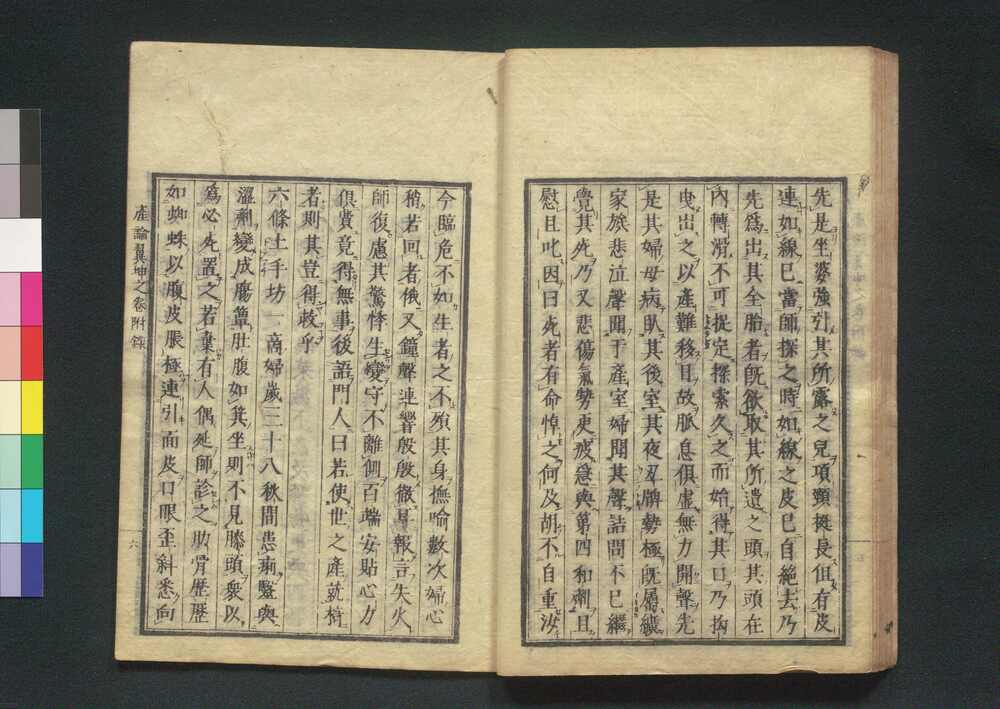 先是坐婆強引其所露之兒項頸挺長但有皮
連如線已當師探之時如線之皮已自絕去乃
先爲出其全胎者既欲取其所遺之頭其頭在
內轉滑不可捉定探索久之而始得其口乃拘
曳出之以產難移且故脈息俱虛無力開聲先
是其婦母病臥其後室其夜丑牌勢極既屬纊
家族悲泣聲聞于產室婦聞其聲詰問不已繼
覺其死乃又悲傷氣勢更疲急與第四和劑且
慰且叱因曰死者有命悼之何及胡不自重汝
今臨危不如生者之不殞其身撫喻數次婦心
稍若回者俄又鐘聲連響殷殷徹耳報言失火
師復慮其驚悸生變守不離側百端安貼心力
俱賁竟得無事後語門人曰若使世之產就椅
者則其豈得救乎
六條土手坊一商婦歲三十八秋間患痢醫與
濇劑變成腸覃肚腹如箕坐則不見膝頭衆以
爲必死置之若棄有人偶延師診之肋骨歷歷
如蜘蛛以腹皮脹極連引面皮口眼歪斜悉向
產論翼坤之卷附錄
六